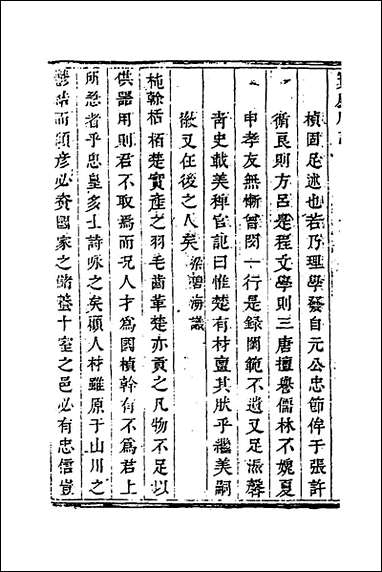 楨固足述也若乃理學發自元公忠節侔于張許
循良則方呂是程文學則三唐擅譽儒林不媿夏
申孝友無慚曾閔一行是錄閫範不遺又足派馨
青史戢美稗官記曰惟楚有材亶其狀乎繼美嗣
徽又在後之人矣 梁碧海議
杶榦栝柏楚實產之羽毛齒革楚亦貢之凡物不足以
供器用則君不取焉而况人才為國楨榦有不為君上
所急者乎忠皇多士詩咏之矣顧人材雖原于山川之
而須彥必賚國家之儲蓋十室之邑必有忠信豈